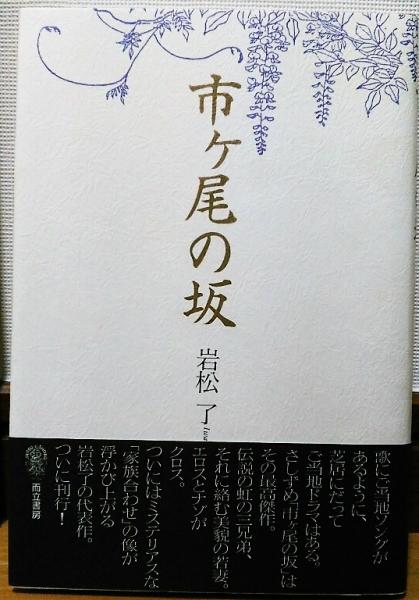 市ヶ尾の坂
岩松 了
歌にご当地ソングが
あるように、
芝居にだって
ご当地ドラマはある。
さしずめ「市ヶ尾の坂」は
その最高傑作。
伝説の虹の三兄弟、
それに絡む美貌の若妻。
エロスとナゾが
クロス、
ついにはミステリアスな
「家族合わせ」の像が
浮かび上がる
岩松了の代表作。
ついに刊行！
而立書房